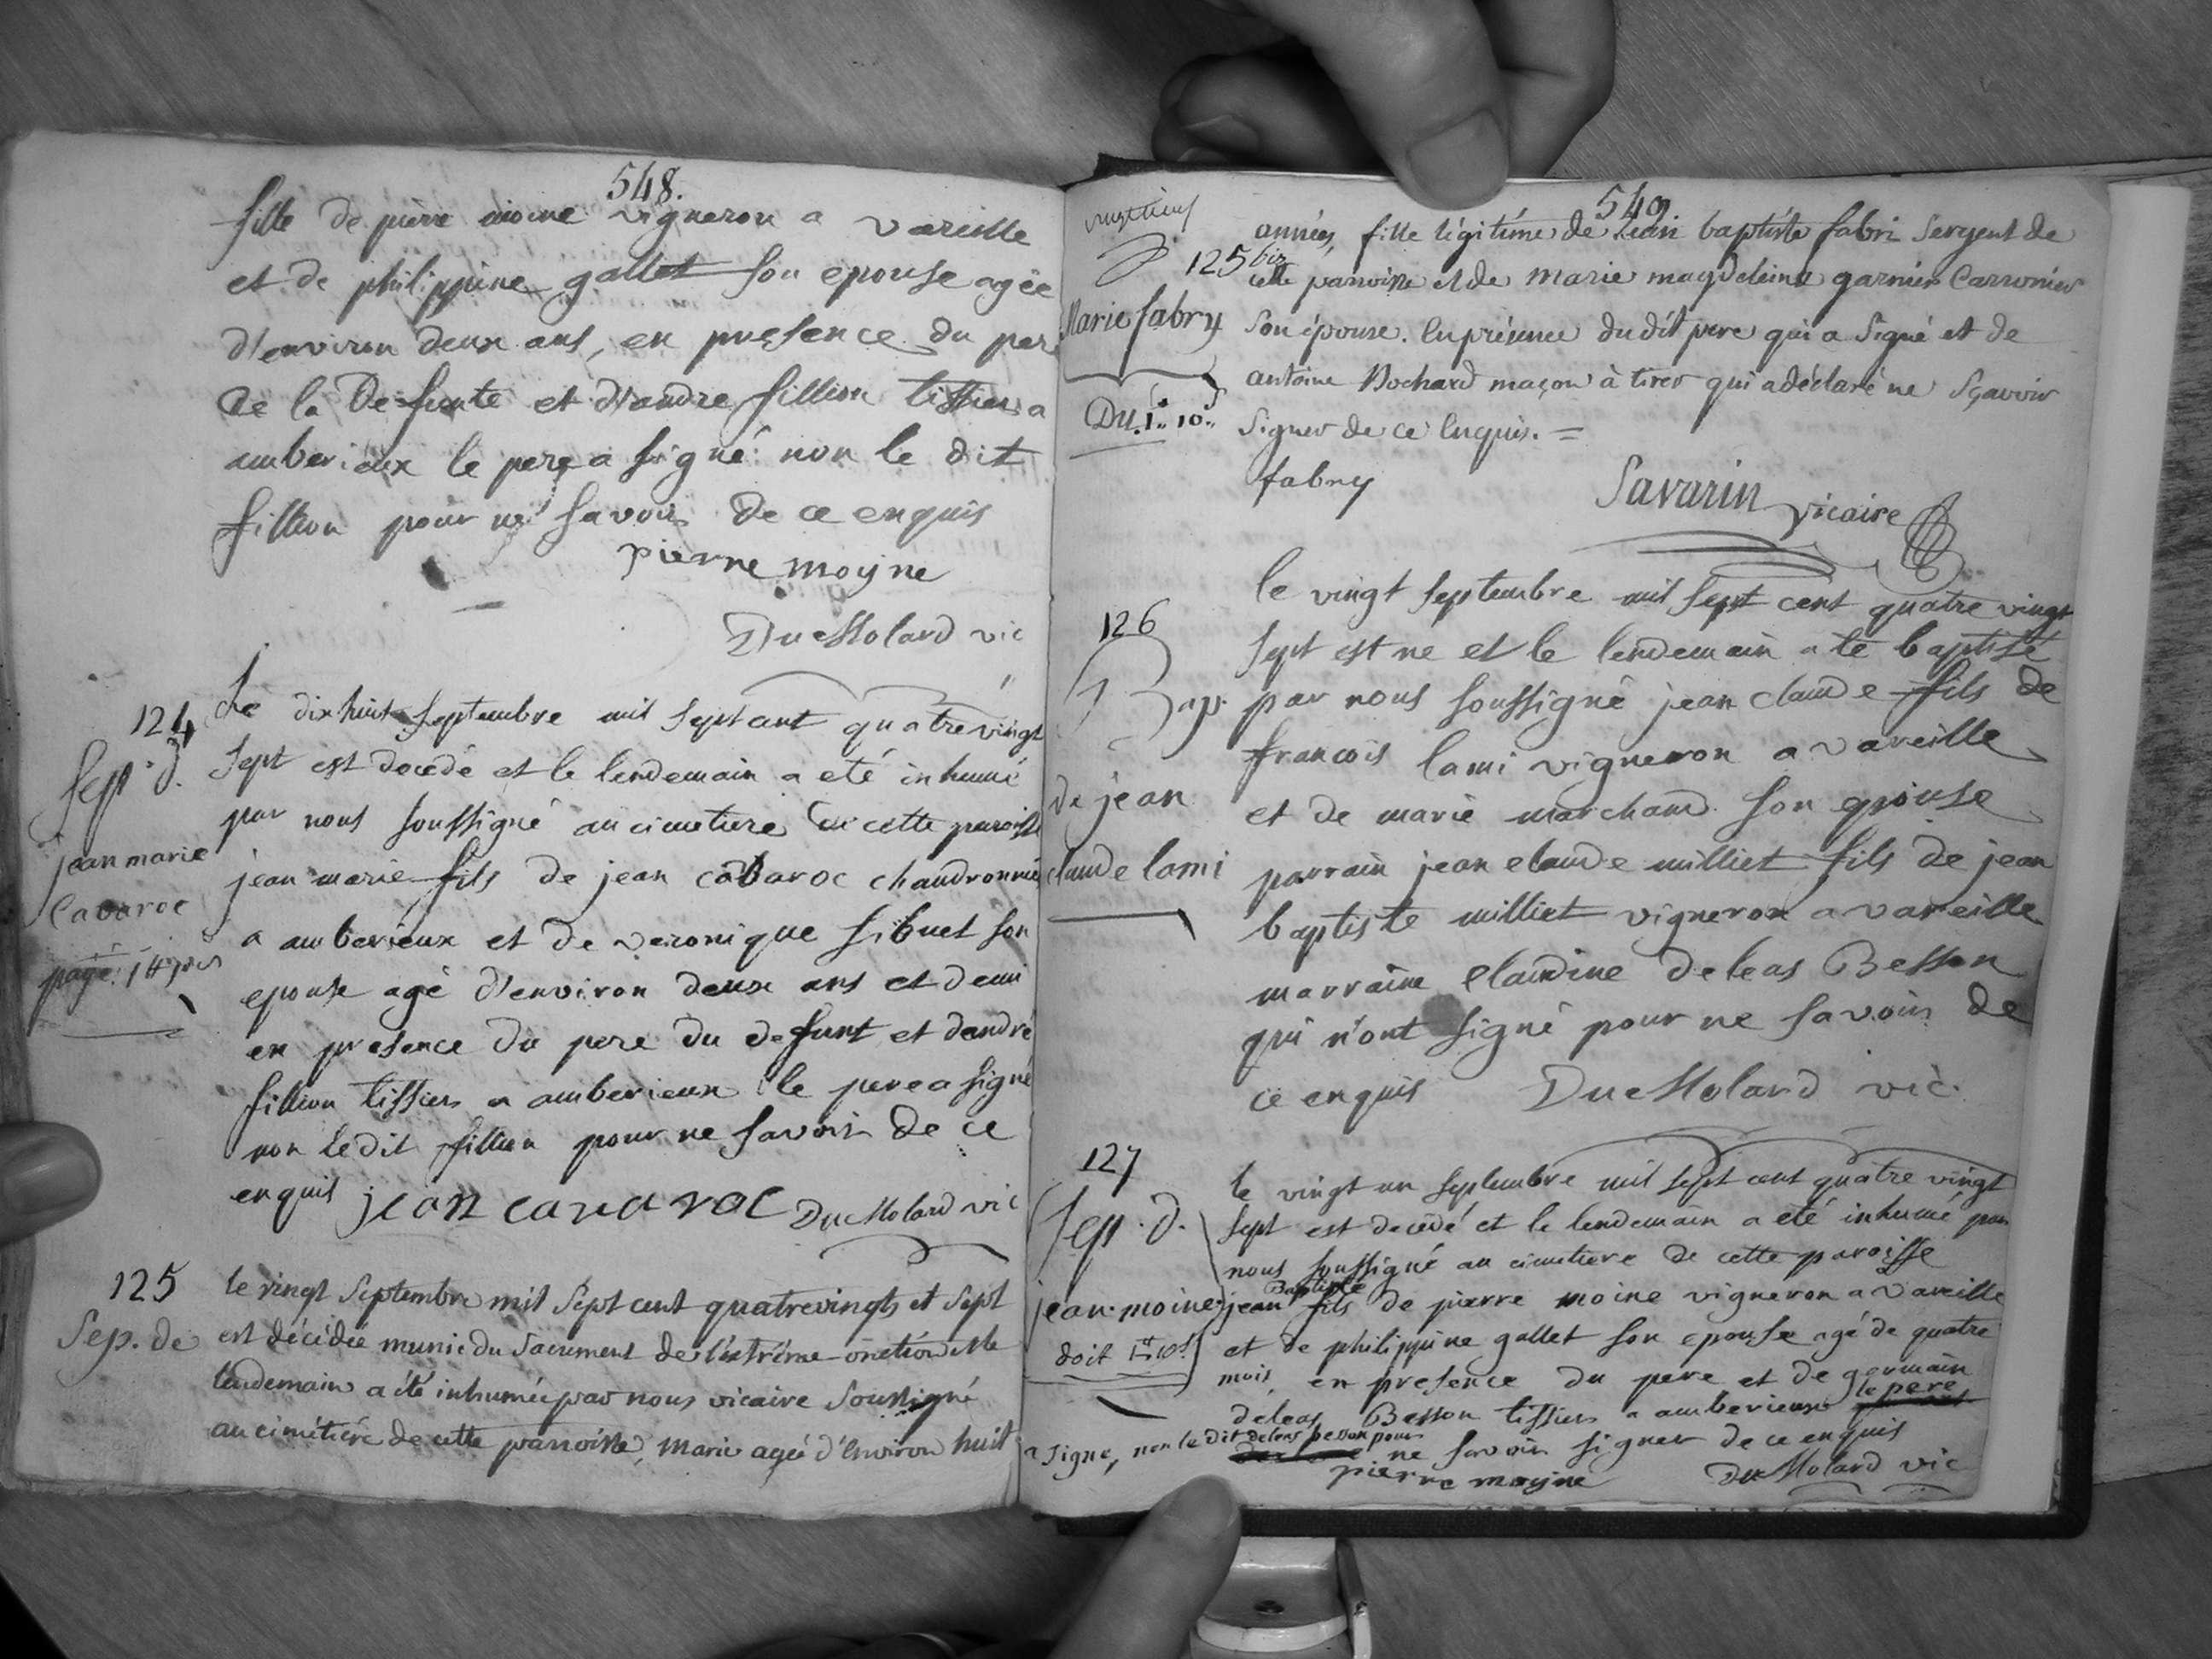 548.
fille de pierre moine vigneron a vareille
et de philippine gallet son epouse agée
d'environ deux ans, en presence du per
de la defunte et d'andre fillion tissier a
amberieux le pere a signé non le dit
fillion pour ne savoir de ce enquis
pierre moyne
DuMolard vic
124
Sep. d.
jean marie
Cavaroc
Le dix huit septembre mil sept cent quatre vingt
sept est decédé et le lendemain a eté inhumé
par nous soussigné au cimetiere de cette paroisse
jean marie fils de jean cavaroc chaudronnie
a amberieux et de veronique sibuet son
epouse agé d'environ deux ans et demi
en presence du pere du defunt et dandré
fillion tissier a amberieux le pere a signé
non ledit fillion pour ne savoir de ce
enquis jean cavaroc DuMolard vic
125
Sep. de
le vingt Septembre mil Sept cent quatrevingts et Sept
est décédée munie du Sacrement de l'extrême-onction et le
lendemain a été inhumée par nous vicaire Soussigné
au cimétiére de cette parroisse, Marie agée d'Environ huit
549
125 bis
Marie fabry
Du. 1.. 10..
années, fille légitime de Jean baptiste fabri Sergent de
cette parroisse et de Marie magdeleine garnier Carronier
Son épouse. En présence dudit pere qui a Signé et de
antoine Bochard maçon à tirer qui a déclaré ne Sçavoir
Signer de ce Enquis. =
fabry
Savarin vicaire
126
Bap.
de jean
claude lami
le vingt septembre mil sept cent quatre vingt
sept est né et le lendemain a eté baptisé
par nous soussigné jean claude fils de
francois lami vigneron a vareille
et de marie marchand son epouse
parrain jean claude milliet fils de jean
baptiste milliet vigneron a vareille
marraine Claudine deleas Besson
qui n'ont signé pour ne savoir de
ce enquis DuMolard vic.
127
Sep. d.
jean moine
doit
le vingt un septembre mil sept cent quatre vingt
sept est decédé et le lendemain a eté inhumé par
nous soussigné au cimetiere de cette paroisse
jean Baptiste fils de pierre moine vigneron a vareille
et de philippine gallet son epouse agé de quatre
mois, en presence du pere et de germain
deleas Besson tissier a amberieux le pere
a signé, non le dit deleas besson pour ne savoir signer de ce enquis
pierre moyne DuMolard vic